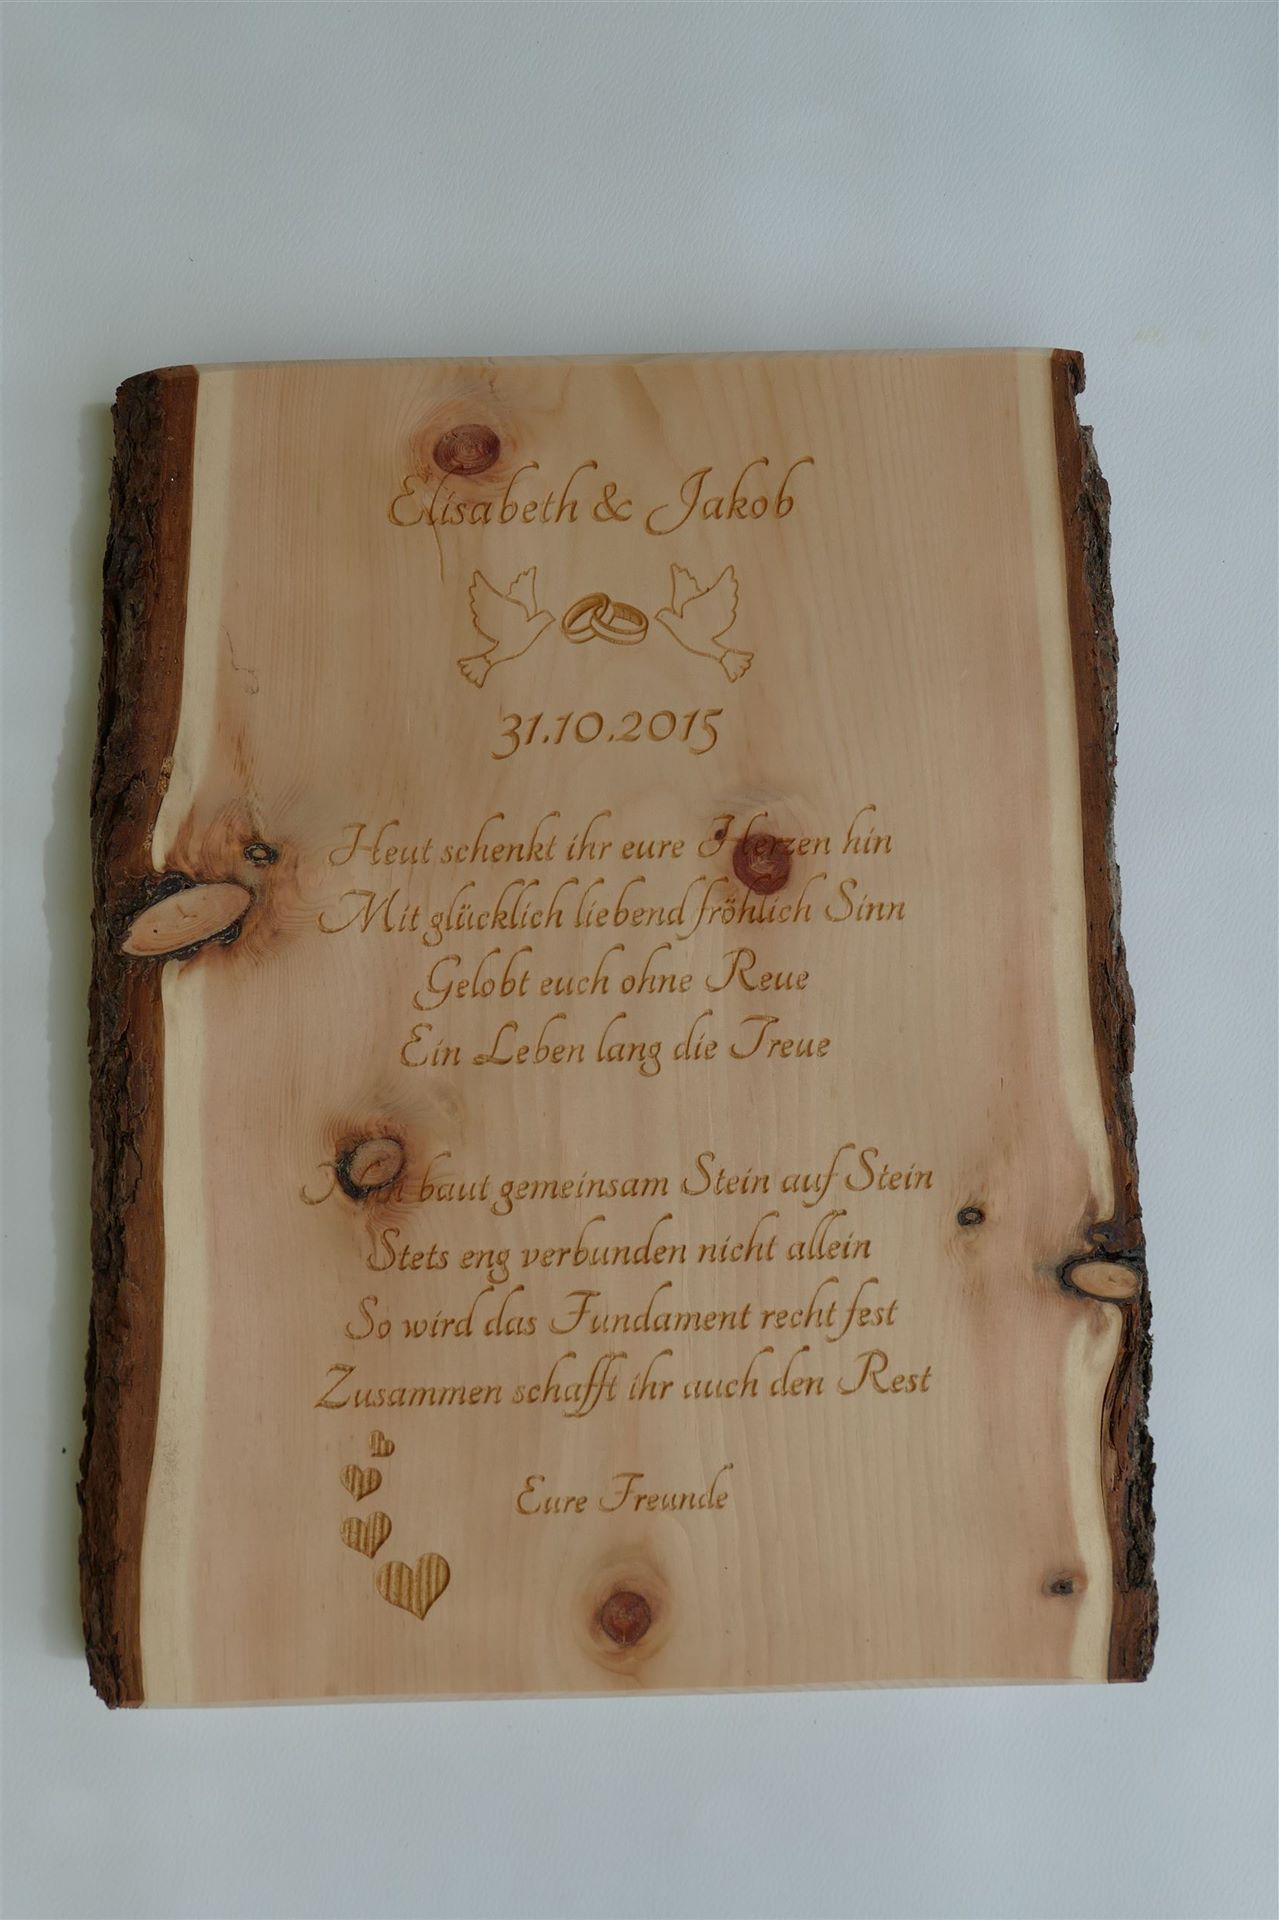 Elisabeth & Jakob
31.10.2015
Heut schenkt ihr eure Herzen hin
Mit glücklich liebend fröhlich Sinn
Gelobt euch ohne Reue
Ein Leben lang die Treue
Nun baut gemeinsam Stein auf Stein
Stets eng verbunden nicht allein
So wird das Fundament recht fest
Zusammen schafft ihr auch den Rest
Eure Freunde